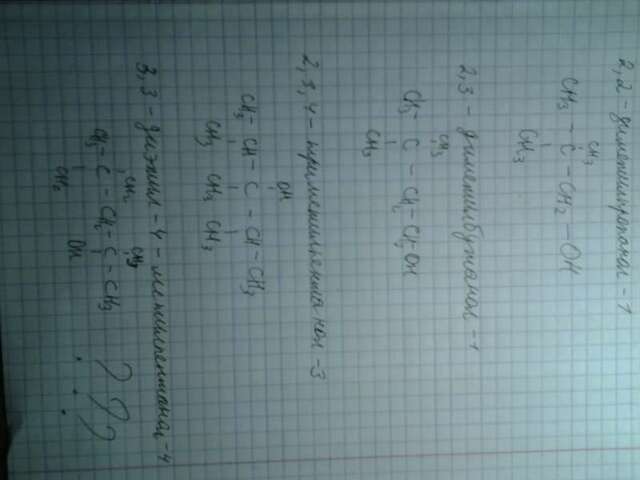 2,2-диметилпропанол-1
CH₃
CH₃ - C - CH₂ - OH
CH₃
2,3-диметилбутанол-1
CH₃
CH₃ C - CH - CH₂OH
CH₃
2,3,4-триметилпентанол-3
OH
CH₃ - CH - C - CH - CH₃
CH₃ CH₃ CH₃
3,3-диэтил-4-метилпентанол-4
CH₂ CH₃
CH₃ - C - CH₂ - C - CH₃
CH₂ OH
? ? ?